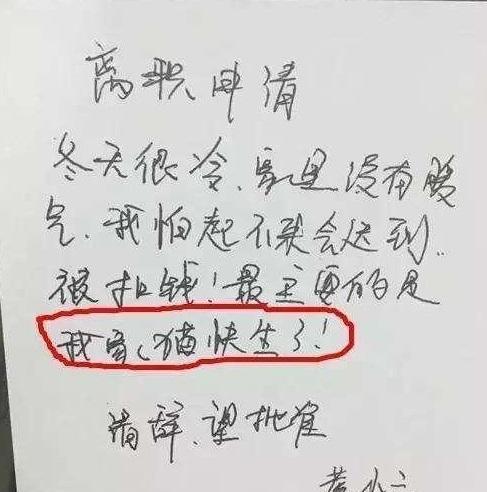 离职申请
冬天很冷、家里没有暖
气、我怕起不来会迟到、
被扣钱！最主要的是
我家猫快生了！
请辞、望批准